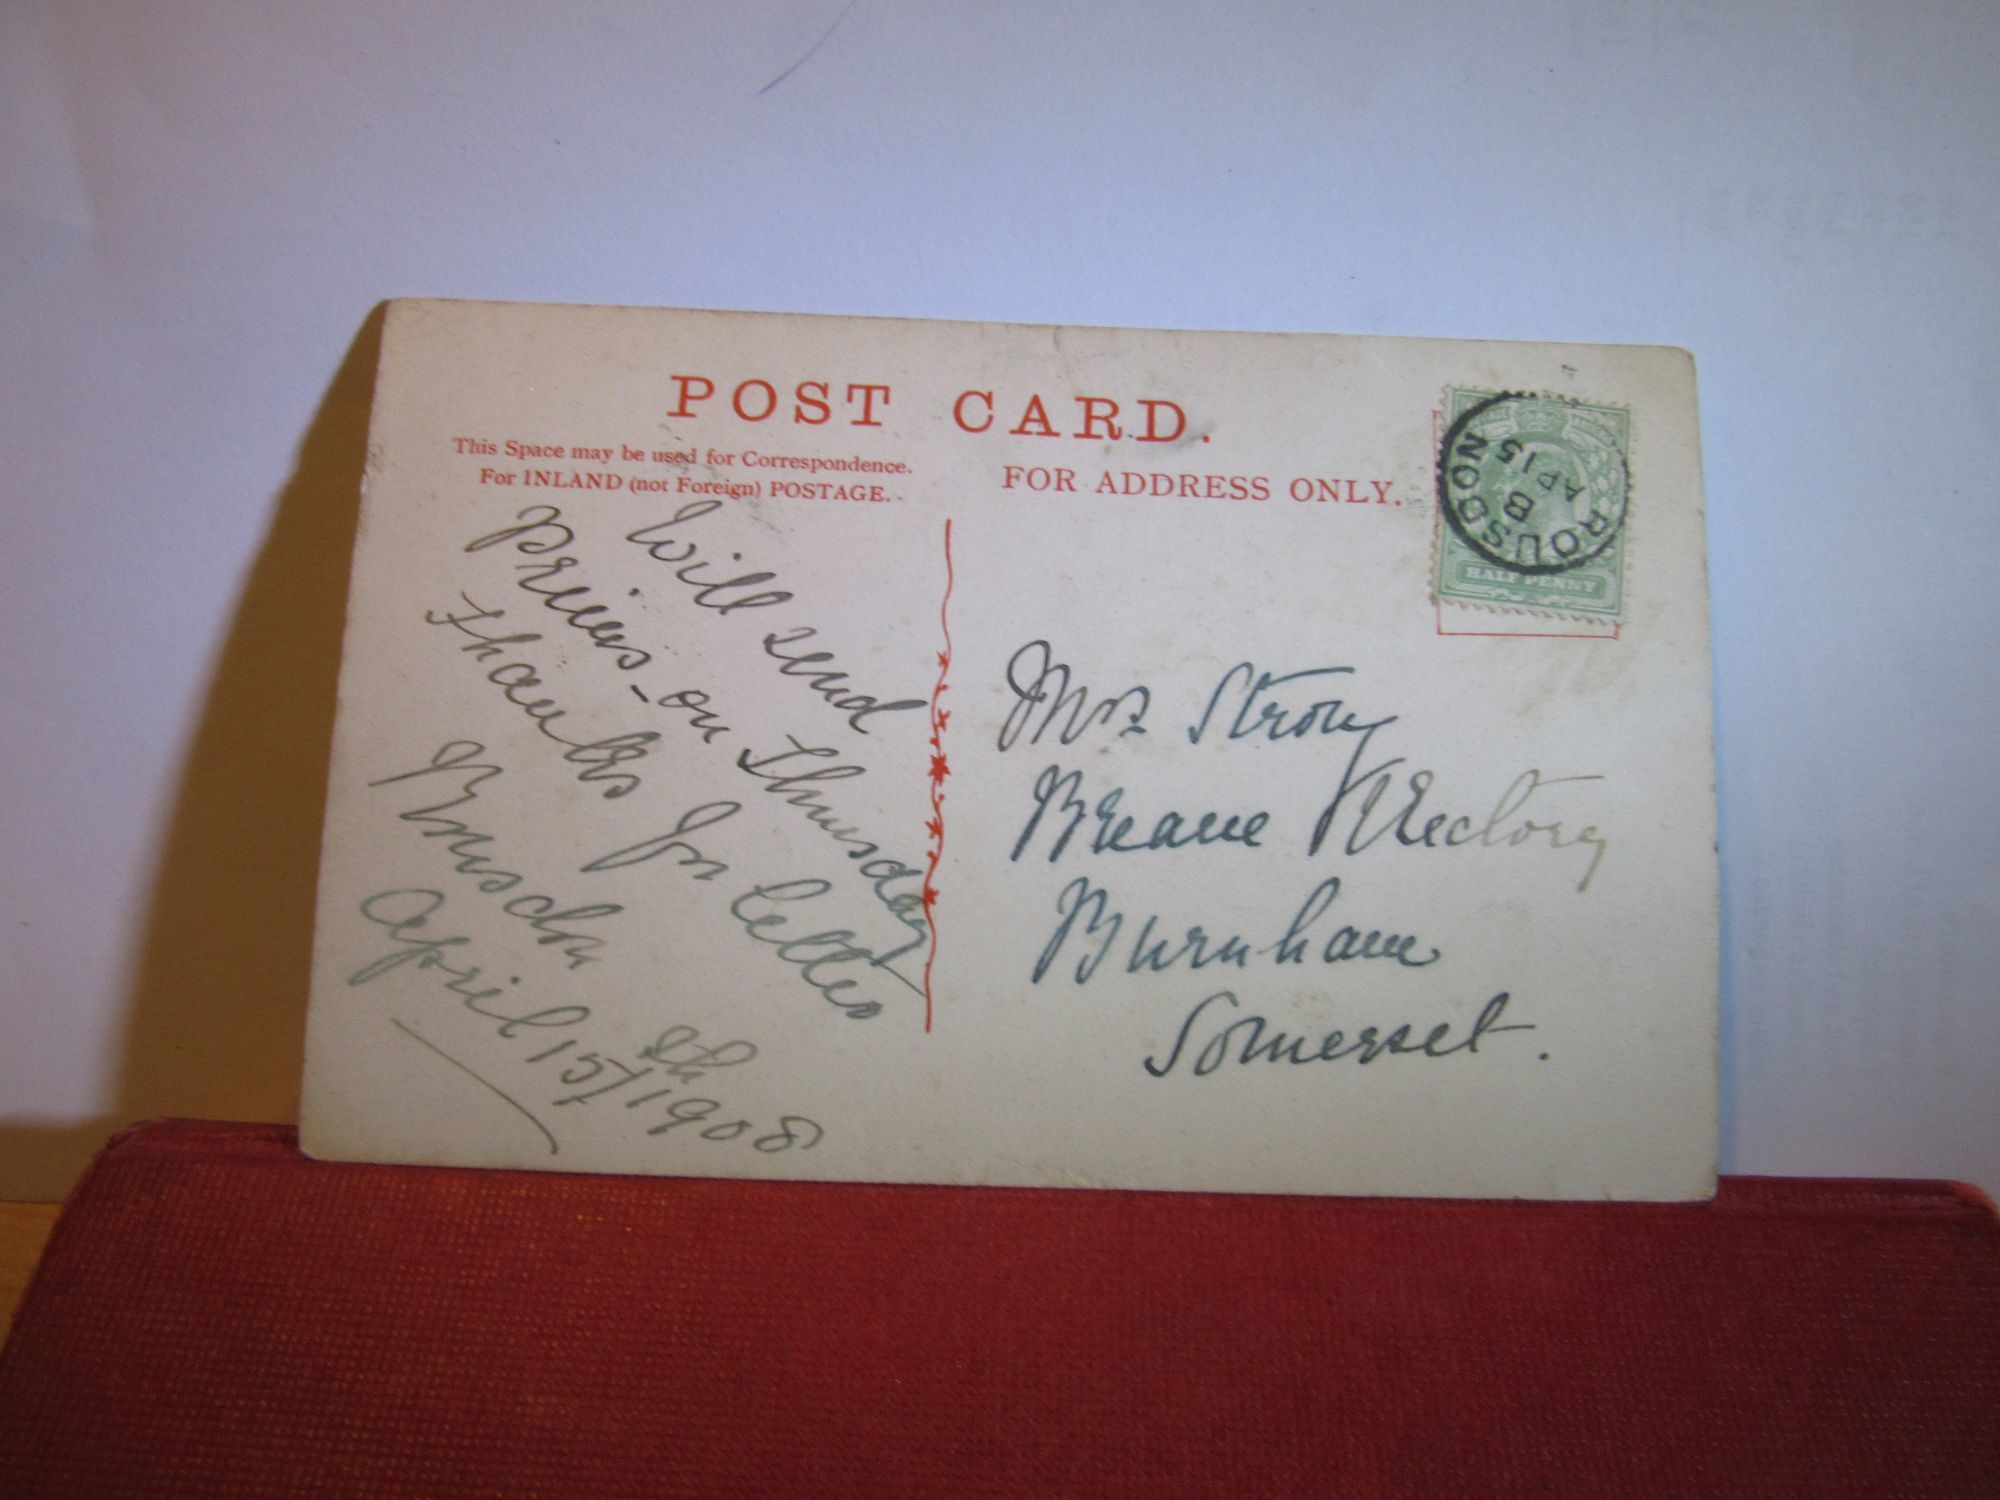 POST CARD.
This Space may be used for Correspondence.
For INLAND (not Foreign) POSTAGE.
FOR ADDRESS ONLY.
Will send
on Thursday
Thanks for letter
Rousdon
April 15th/1908
Mrs Strong
Breane Rectory
Burnham
Somerset.
ROUSDON
B
AP 15
HALF PENNY